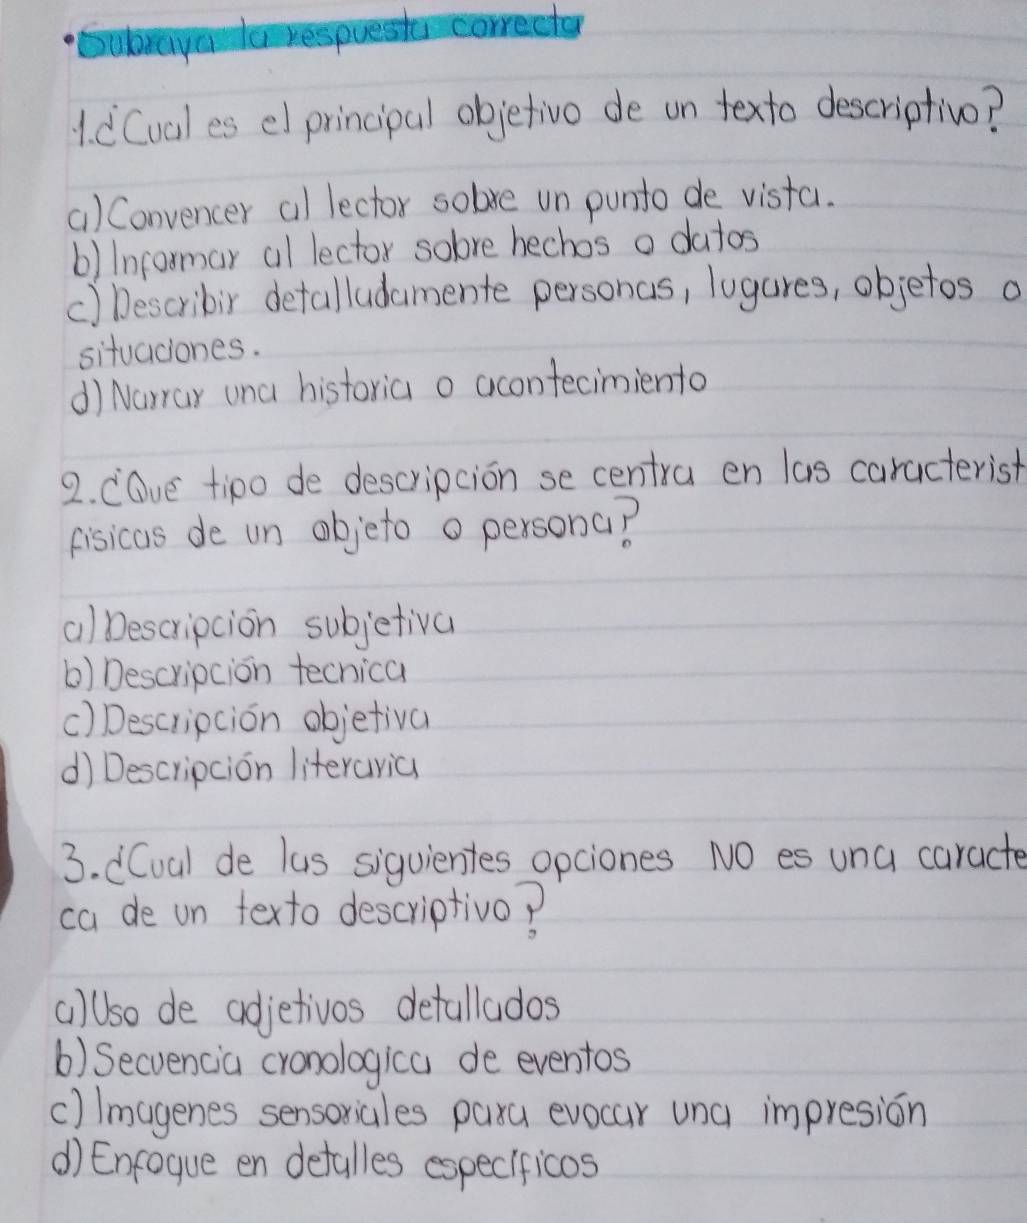 •Subraya la respuesta correcta
1.¿Cual es el principal objetivo de un texto descriptivo?
a) Convencer al lector sobre un punto de vista.
b) Informar al lector sobre hechos o datos
c) Describir detalladamente personas, lugares, objetos o
situaciones.
d) Narrar una historia o acontecimiento
2. ¿Qué tipo de descripción se centra en las caracterist
fisicas de un objeto o persona?
a) Descripción subjetiva
b) Descripción tecnica
c) Descripción objetiva
d) Descripción literaria
3. ¿Cual de las siguientes opciones NO es una caracte
ca de un texto descriptivo?
a) Uso de adjetivos detallados
b) Secuencia cronologica de eventos
c) Imagenes sensoriales para evocar una impresión
d) Enfoque en detalles especificos